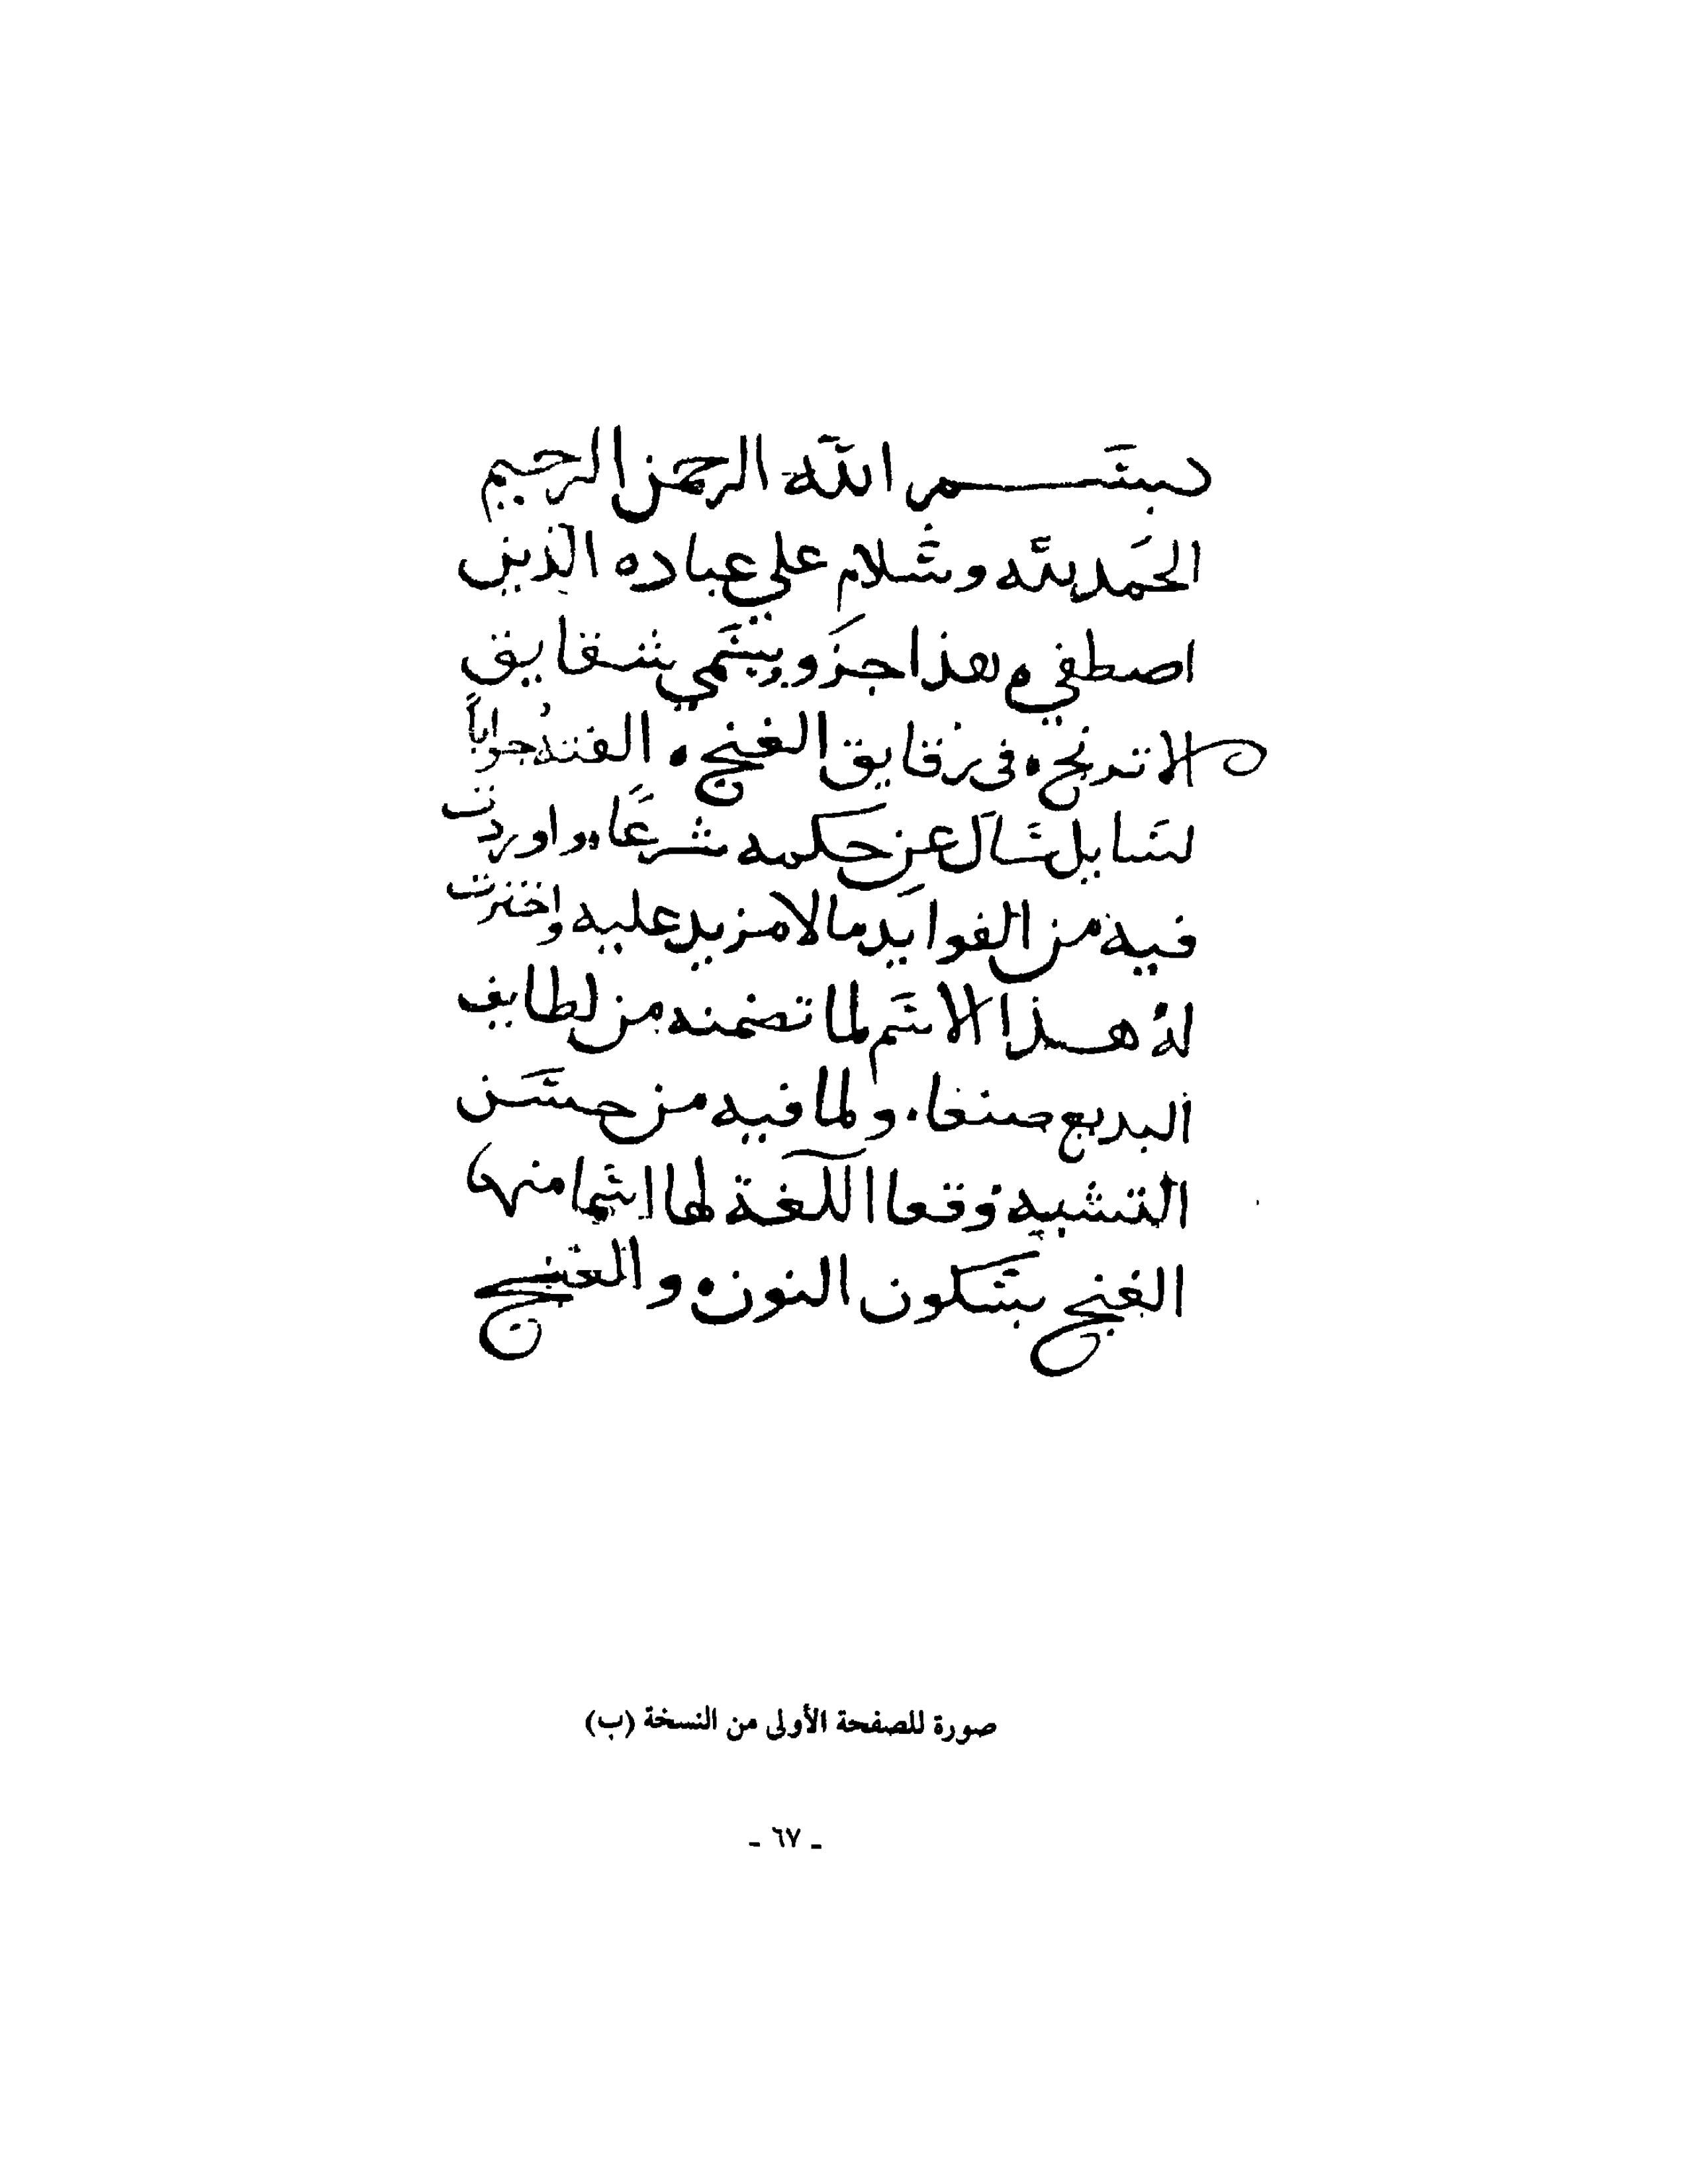 بسم الله الرحمن الرحيم
الحمد لله وسلام على عباده الذين
اصطفي ه هذا جزو يسمي شقايق
الاترنج ه في رقايق الغنج ه الفته جواباً
لسايل سال عن حكمه شرعاً ه واوردت
فيه من الفوايد مالا مزيد عليه واخترت
له هذا الاسم لما تضمنه من لطايف
البديع صنعا ه ولما فيه من حسن
التشبيه وقعا اللغة لها اسما منها
الغنج بسكون النون ه والغنج
صورة للصفحة الأولى من النسخة (ب)
- ٦٧ -